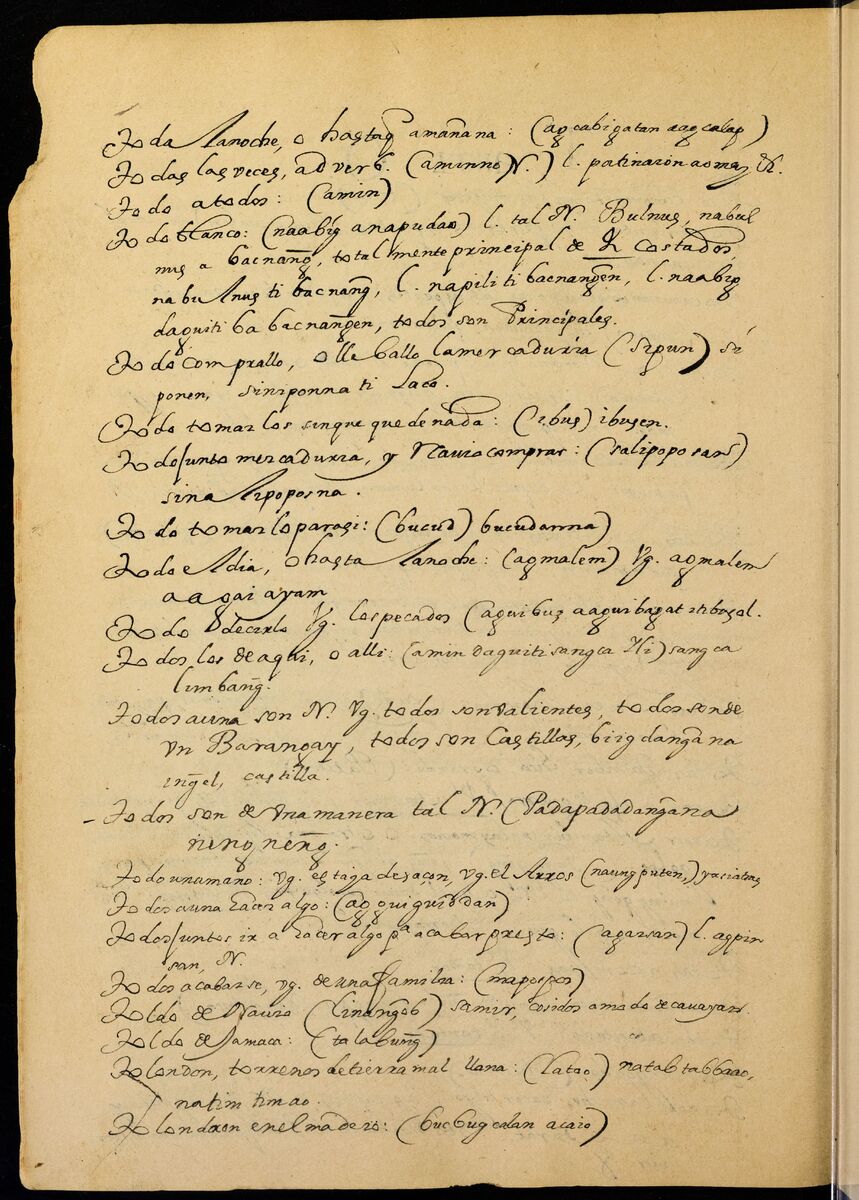 Toda Lanoche, o hastaq̃ amañana: (agcabigatan aagcalap)
Todas las veces, adverb. (aminno N.) l. patinaion aomay &.
Todo atodos: (amin)
Todo blanco: (naabíg anapudao) l. tal N. Bulnus, nabul
nus a bacnañg, totalmente principal de costados
nabulnus ti bacnang, l. napiliti bacnangen, l. naabig
daguiti babacnangen, todos son Principales.
Todo comprallo, o lleballo lamercaduria (sipun) si
ponen, siniponna ti Laco.
Todo tomarlos sinque quede nada: (ibus) ibusen.
Todojunto mercaduria, y Navio comprar: (salipoposan)
sinalipoposna.
Todo tomarloparasi: (bucud) bucudanna)
Todo eldia, ohasta Lanoche: (agmalem) Vg. agmalem
aagaiayam
Todo decirlo Vg. lospecados (aguibus aaguibagat itibasol.
Todos los de aqui, o alli: (amin daguitisangca Ili) sangca
limbañg.
Todos auna son N. Vg. todos sonvalientes, todos sonde
vn Barangay, todos son Castillas, bigdangana
ingel, castilla.
Todos son de vnamanera tal N. (Padapadadangana
ningneñg.
Todo unamano: vg. estaya desaçon, vg. el Arros (naungputen,)
Todos auna hacer algo: (agguiguiddan)
Todosjuntos ir a hacer algo pª acabar presto: (agarsan) l. agpin
san, N.
Todos acabarse, vg. de una familia: (mapospos)
Toldo de Navio (linangob) samir, cosidos amodo de cauayan.
Toldo de Jamaca: (talabuñg)
Tolondon, torrenos detierra mal llana: (Latao) natabtabbaao,
natimtimao.
Tolondron enelmadero: (bucbugcalan acaio)